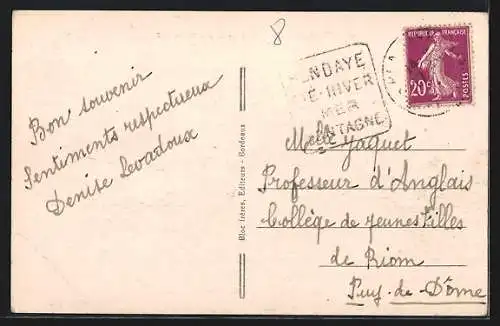 8
HENDAYE
ÉTÉ-HIVER
MER
MONTAGNE
REPUBLIQUE FRANÇAISE
20c
POSTES
Bon souvenir
Sentiments respectueux
Denise Levadoux
Bloc frères, Editeurs - Bordeaux
Melle Jaquet
Professeur d'Anglais
Collège de jeunes filles
de Riom
Puy-de-Dôme